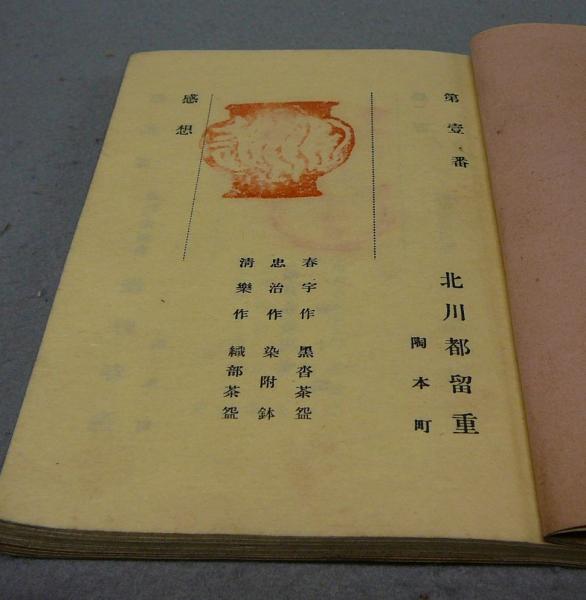 第壹番
北川都留重
陶本町
春宇作　黒沓茶盌
忠治作　染附鉢
清樂作　織部茶盌
感想